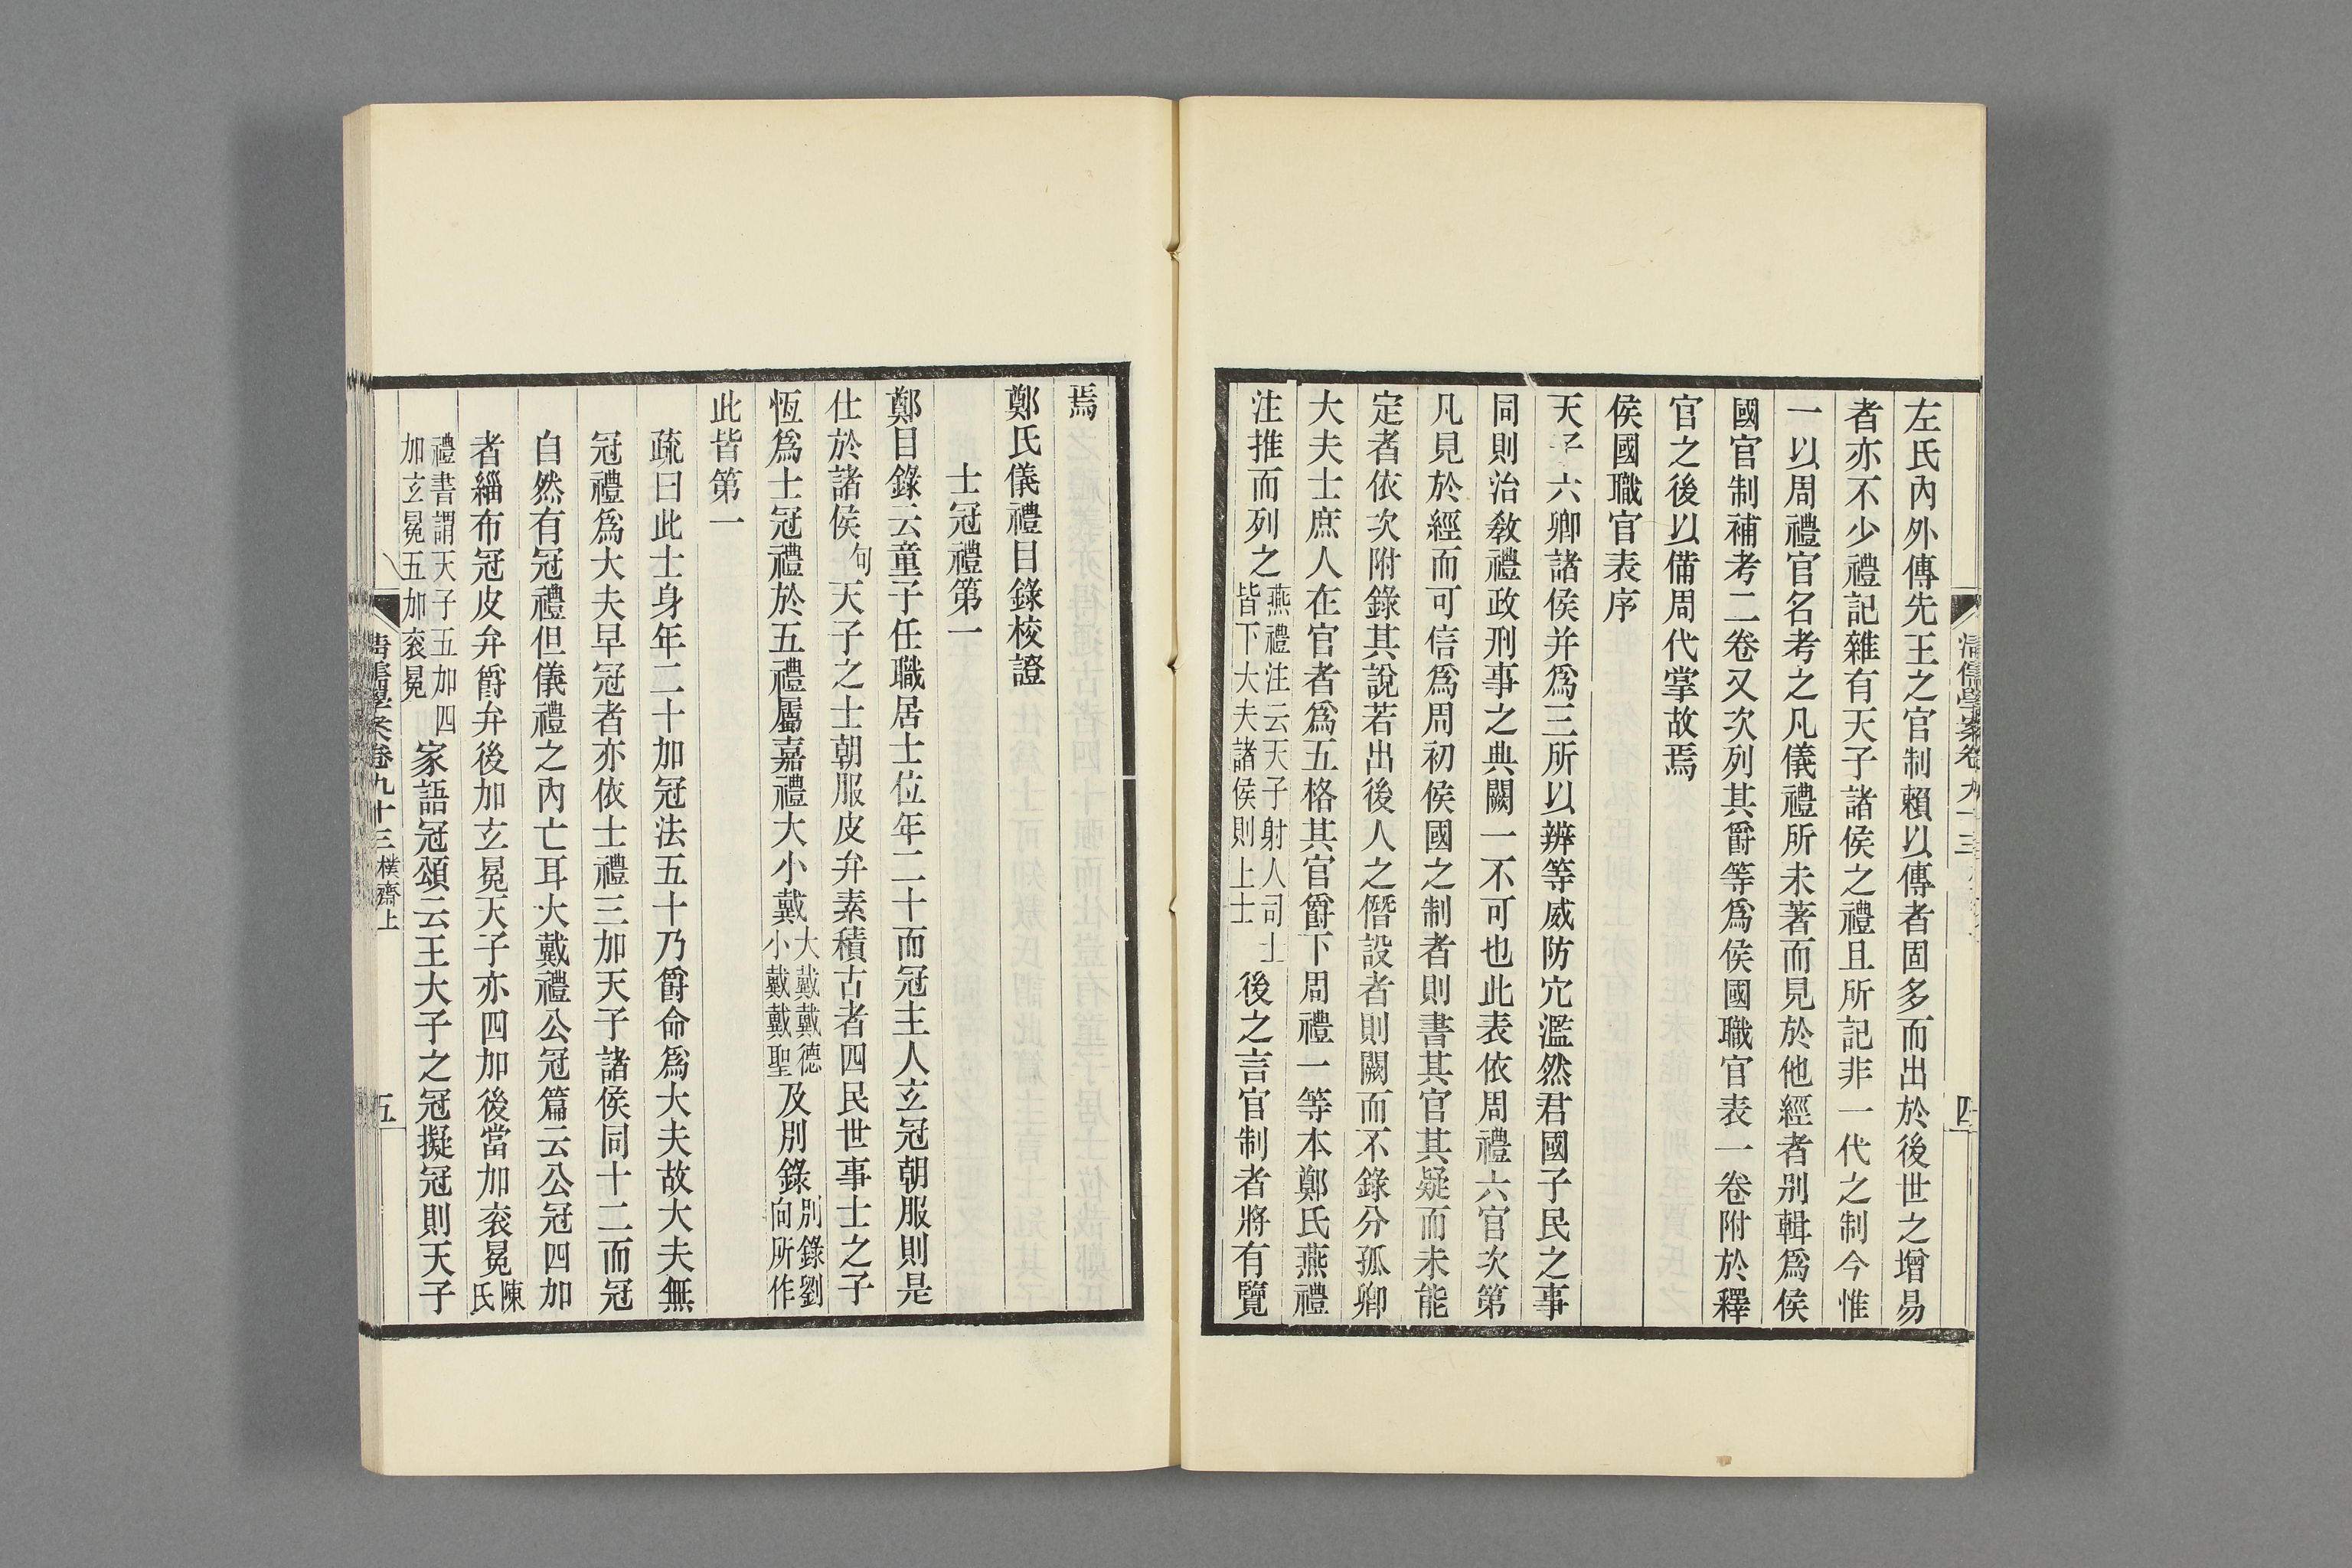 左氏內外傳先王之官制賴以傳者固多而出於後世之增易
者亦不少禮記雜有天子諸侯之禮且所記非一代之制今惟
一以周禮官名考之凡儀禮所未著而見於他經者別輯爲侯
國官制補考二卷又次列其爵等爲侯國職官表一卷附於釋
官之後以備周代掌故焉
侯國職官表序
天子六卿諸侯并爲三所以辨等威防宂濫然君國子民之事
同則治敎禮政刑事之典闕一不可也此表依周禮六官次第
凡見於經而可信爲周初侯國之制者則書其官其疑而未能
定者依次附錄其說若出後人之僭設者則闕而不錄分孤卿
大夫士庶人在官者爲五格其官爵下周禮一等本鄭氏燕禮
注推而列之燕禮注云天子射人司士皆下大夫諸侯則上士後之言官制者將有覽
清儒學案卷九十三
四
焉
鄭氏儀禮目錄校證
士冠禮第一
鄭目錄云童子任職居士位年二十而冠主人玄冠朝服則是
仕於諸侯句天子之士朝服皮弁素積古者四民世事士之子
恆爲士冠禮於五禮屬嘉禮大小戴大戴戴德小戴戴聖及別錄別錄劉向所作
此皆第一
疏曰此士身年二十加冠法五十乃爵命爲大夫故大夫無
冠禮爲大夫早冠者亦依士禮三加天子諸侯同十二而冠
自然有冠禮但儀禮之內亡耳大戴禮公冠篇云公冠四加
者緇布冠皮弁爵弁後加玄冕天子亦四加後當加衮冕陳氏
禮書謂天子五加四加玄冕五加衮冕家語冠頌云王大子之冠擬冠則天子
清儒學案卷九十三 樸齋上
五